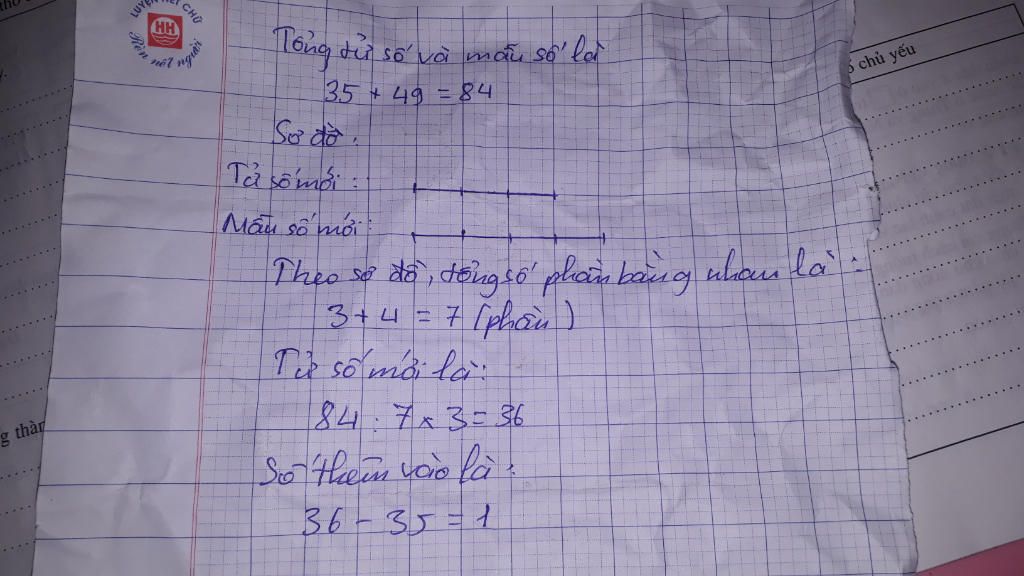 LUYỆN NÉT CHỮ
HH
Rèn nết người
chủ yếu
Tổng tử số và mẫu số là
35 + 49 = 84
Sơ đồ.
Tử số mới:
Mẫu số mới:
Theo sơ đồ, tổng số phần bằng nhau là:
3 + 4 = 7 (phần)
Tử số mới là:
84 : 7 x 3 = 36
g thàn
Số thêm vào là:
36 - 35 = 1